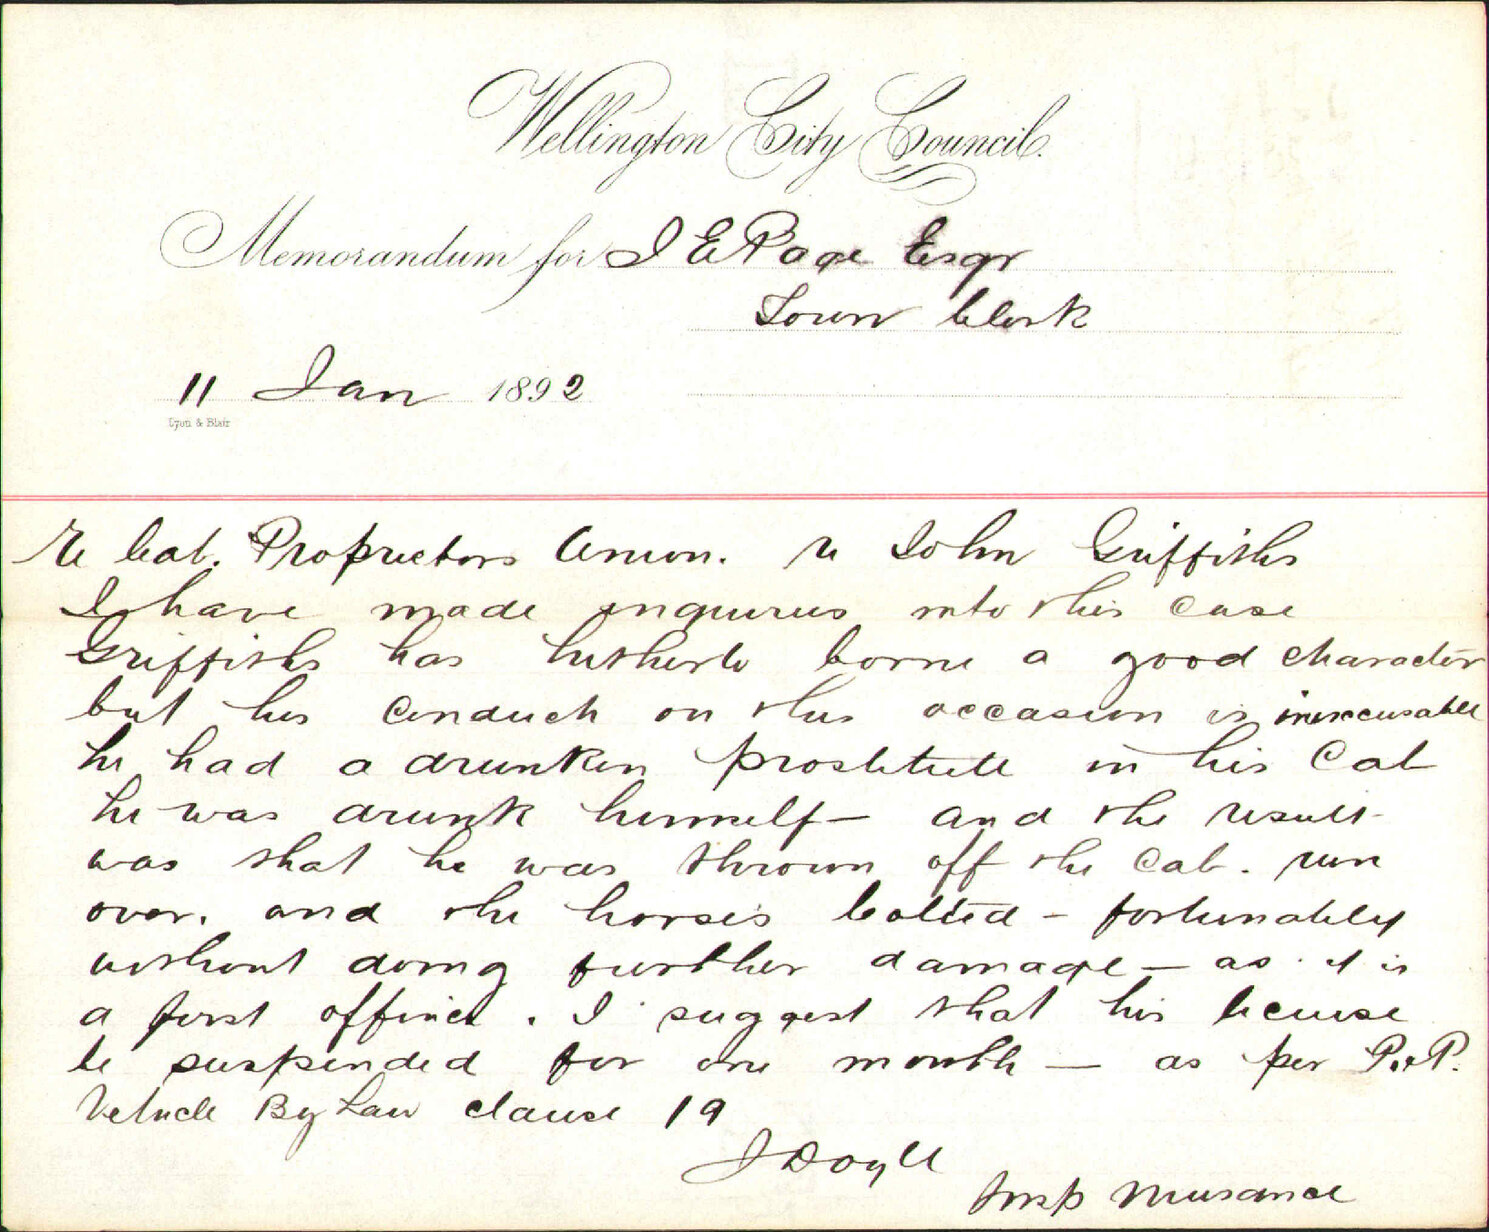 Wellington City Council.
Memorandum for J E Page Esqr
Town Clerk
11 Jan 1892
Lyon & Blair
Re Cab. Proprietors Union. re John Griffiths
I have made inquiries into this case
Griffiths has hitherto borne a good character
but his conduct on this occasion is inexcusable
he had a drunken prostitute in his Cab
he was drunk himself — and the result
was that he was thrown off the Cab. run
over. and the horses bolted — fortunately
without doing further damage — as it is
a first offence. I suggest that his license
be suspended for one month — as per P. & P.
Vehicle By Law clause 19
J Doyle
Insp Nuisance